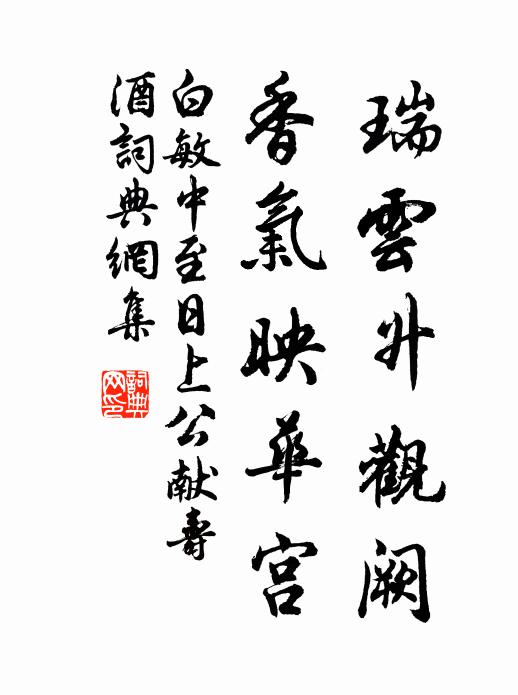 瑞雲升觀闕
香氣映華宮
白敏中至日上公献壽
酒詞典網集
詞典网印